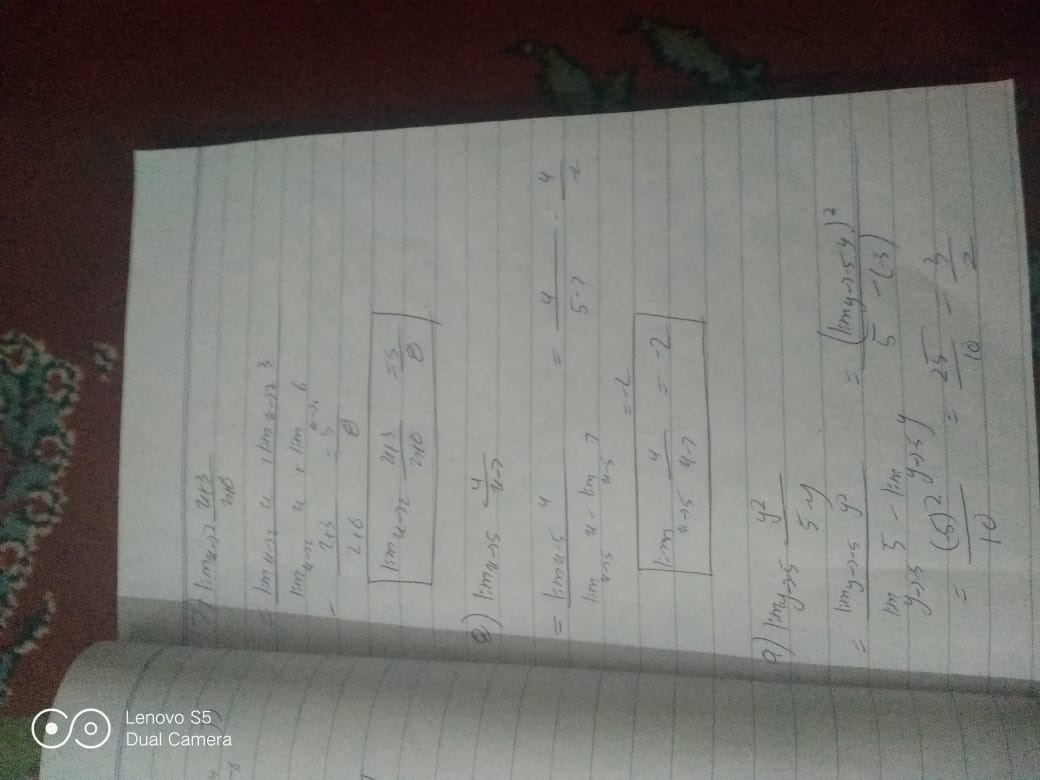 7) lim x→2 x+3/x+6
= lim x→2 x + lim x→2 3
lim x→2 x + lim x→2 6
= 2+3/2+6 = 5/8
lim x→2 x+3/x+6 = 5/8
8) lim x→5 4/x-7
= lim x→5 4 / lim x→5 x - lim x→5 7 = 4/5-7 = 4/-2
= -2
lim x→5 4/x-7 = -2
9) lim y→5 y²/5-y
= lim y→-5 y² / lim y→5 5 - lim y→5 y = (lim y→5 y)²/5-(-5)
= (5)²/10 = 25/10 = 5/2
Lenovo S5
Dual Camera